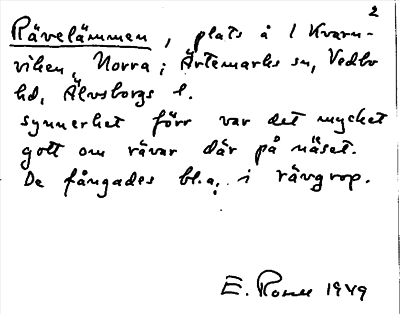 2
Rävelämmen, plats å l Kvarn-
viken, Norra; Ärtemarks sn, Vedbo
hd, Älvsborgs l.
synnerhet förr var det mycket
gott om rävar där på näset.
De fångades bl.a. i rävgrop.
E. Rosell 1949